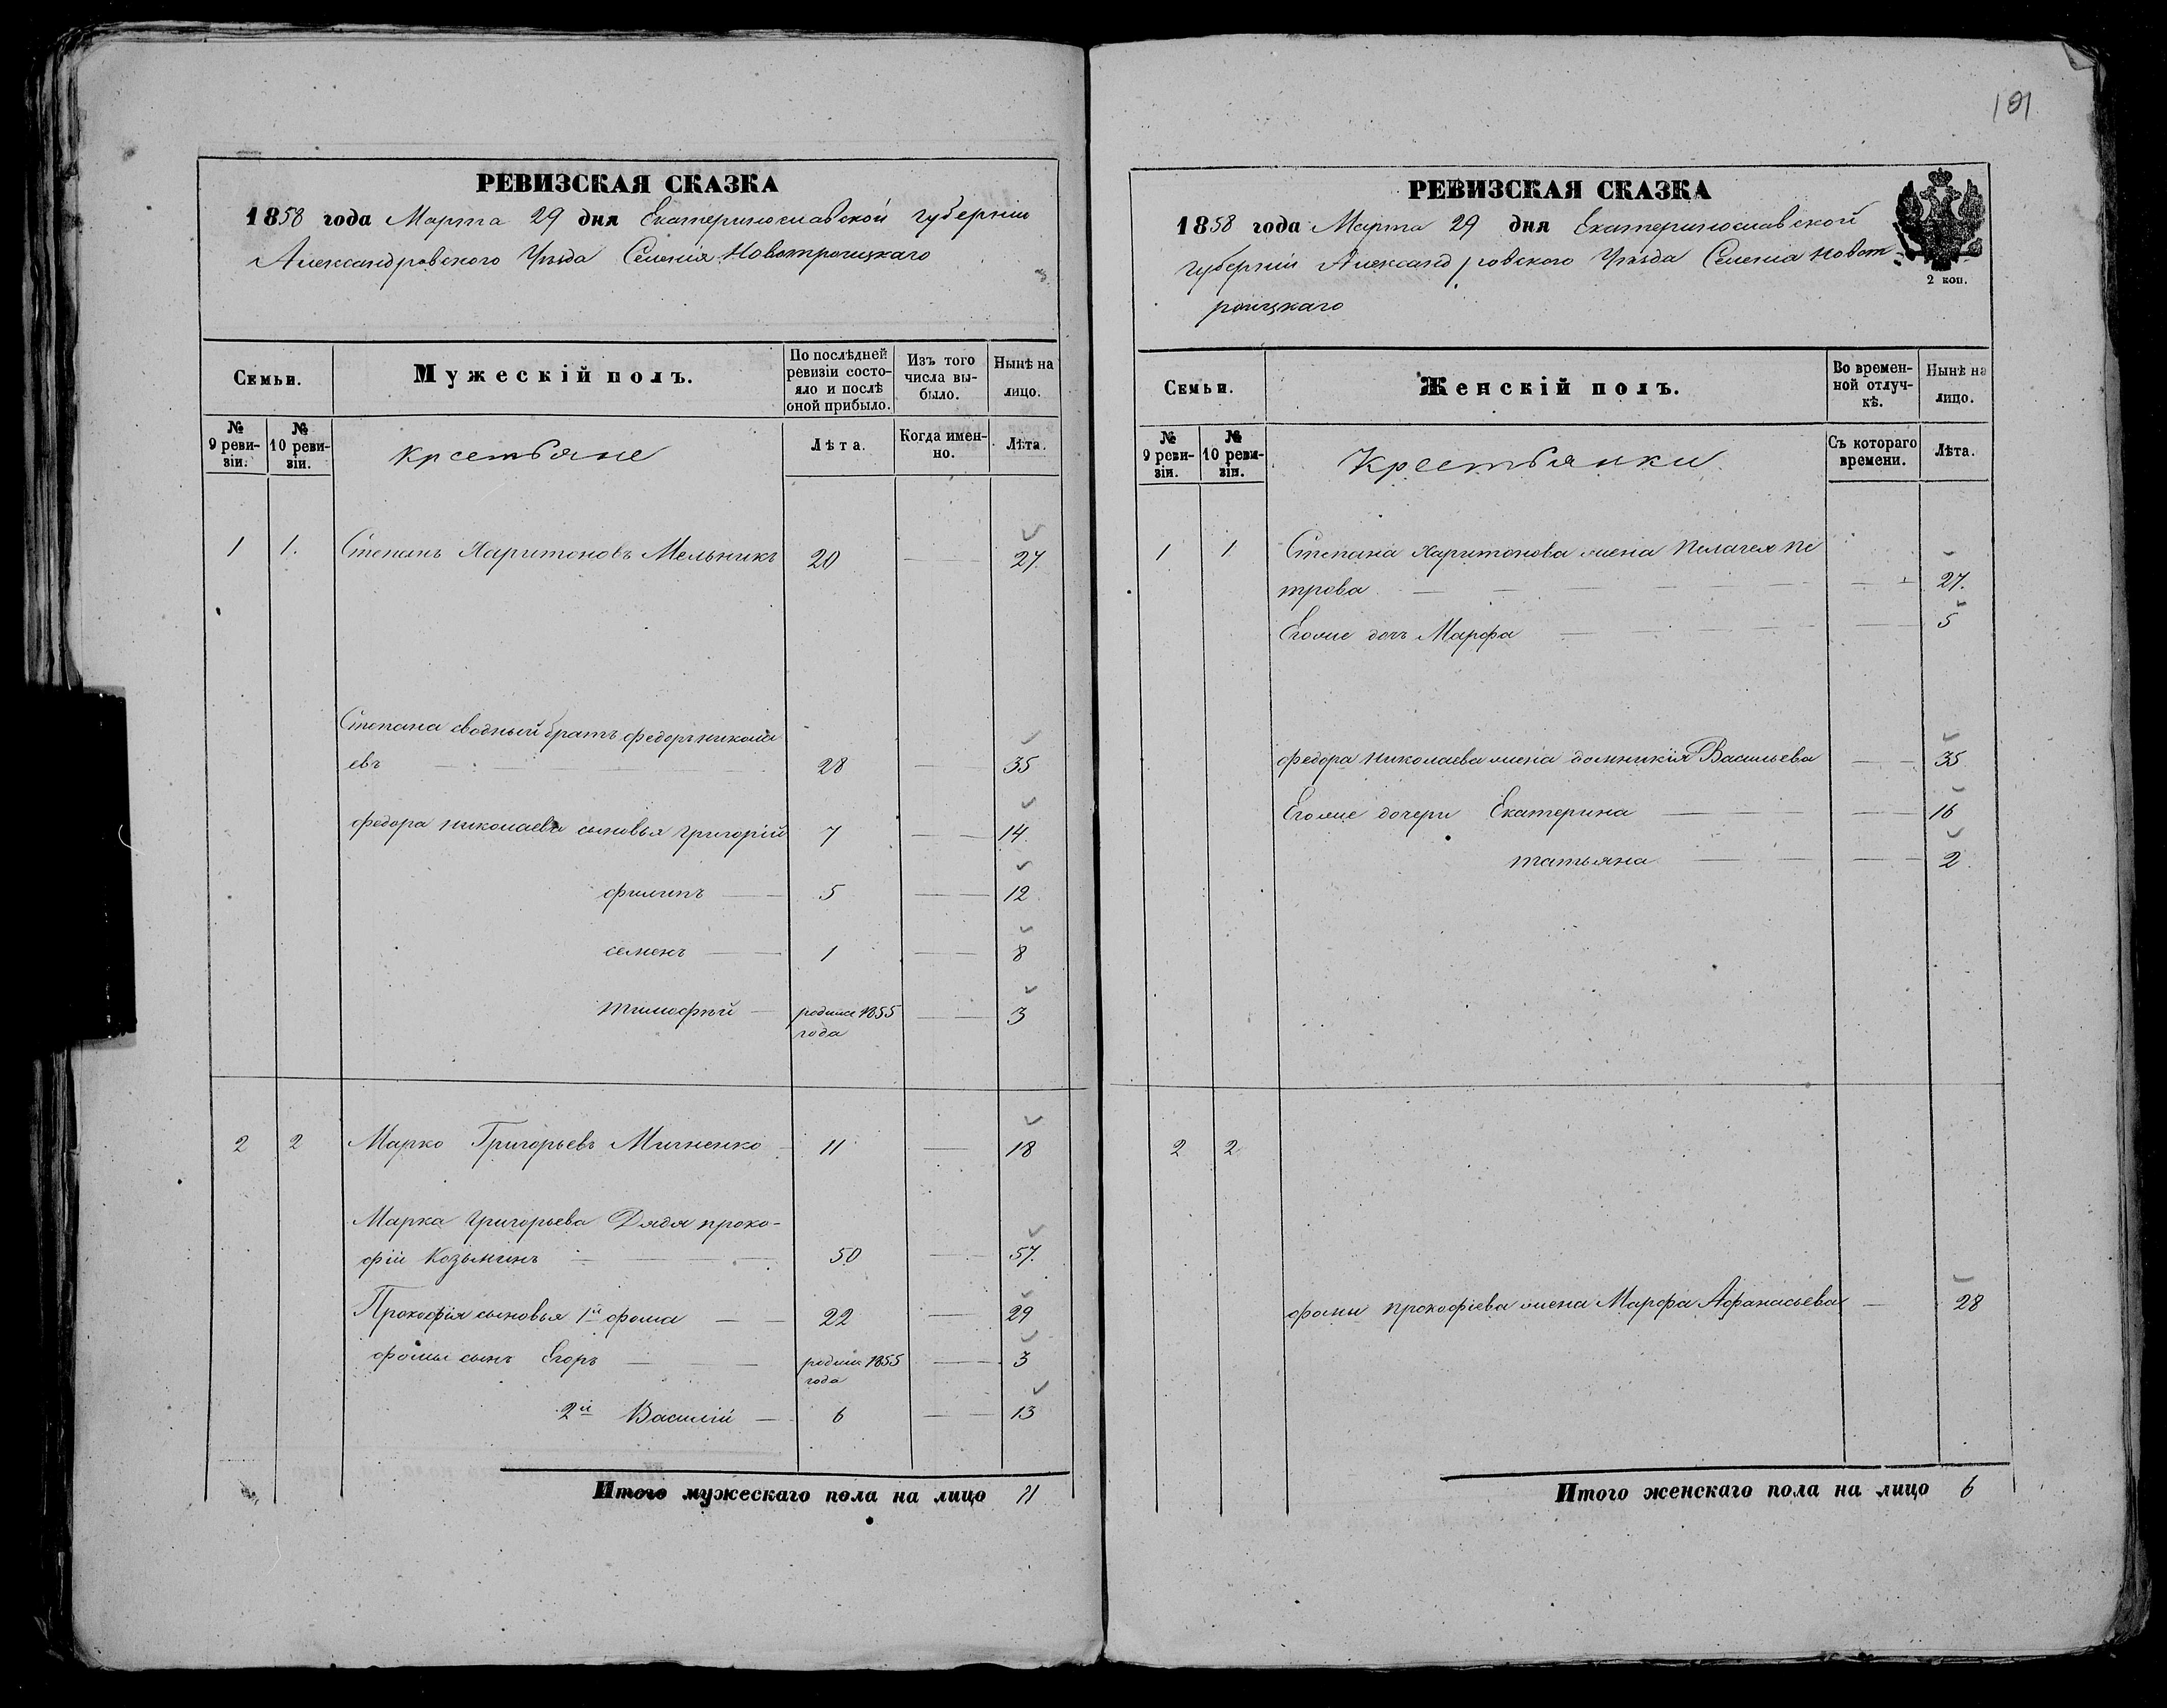 РЕВИЗСКАЯ СКАЗКА
1858 года Марта 29 дня Екатеринославской губерніи
Александровского Уѣзда Селенія Новотроицкаго
Семьи.
Мужескій полъ.
По послѣдней ревизіи состояло и послѣ оной прибыло.
Изъ того числа выбыло.
Нынѣ на лицо.
№ 9 ревизіи.
№ 10 ревизіи.
крестьяне
Лѣта.
Когда именно.
Лѣта.
1 1. Степанъ Харитоновъ Мельникъ 20 — 27.
Степана сводный братъ федоръ николаевъ — 28 — 35
федора николаева сыновья григорій 7 — 14.
филипъ — 5 — 12
семенъ — 1 — 8
тимофѣй — родился 1855 года — 3
2 2 Марко Григорьевъ Мичненко — 11 — 18
Марка григорьева Дядя проко-
фій Козьминъ — 50 — 57.
Прокофія сыновья 1й фома — 22 — 29
фомы сынъ Егоръ — родился 1855 года — 3
2й Василій — 6 — 13
Итого мужескаго пола на лицо 11
191
РЕВИЗСКАЯ СКАЗКА
1858 года Марта 29 дня Екатеринославской
губерніи Александровского Уѣзда Селенія Новот-
роицкаго
2 коп.
Семьи.
Женскій полъ.
Во временной отлучкѣ.
Нынѣ на лицо.
№ 9 ревизіи.
№ 10 ревизіи.
Крестьянки
Съ котораго времени.
Лѣта.
1 1 Степана Харитонова жена Пелагея пе
трова — 27.
Егоже дочь Марфа — 5
федора николаева жена домникія Васильева — 35
Егоже дочери Екатерина — 16
татьяна — 2
2 2
фомы прокофіева жена Марфа Афанасьева — 28
Итого женскаго пола на лицо 6